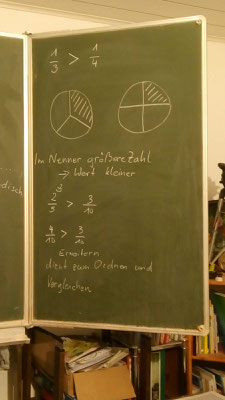 1/3 > 1/4
Im Nenner größere Zahl
→ Wert kleiner
2/5 > 3/10
4/10 > 3/10
Erweitern
dient zum Ordnen und
Vergleichen